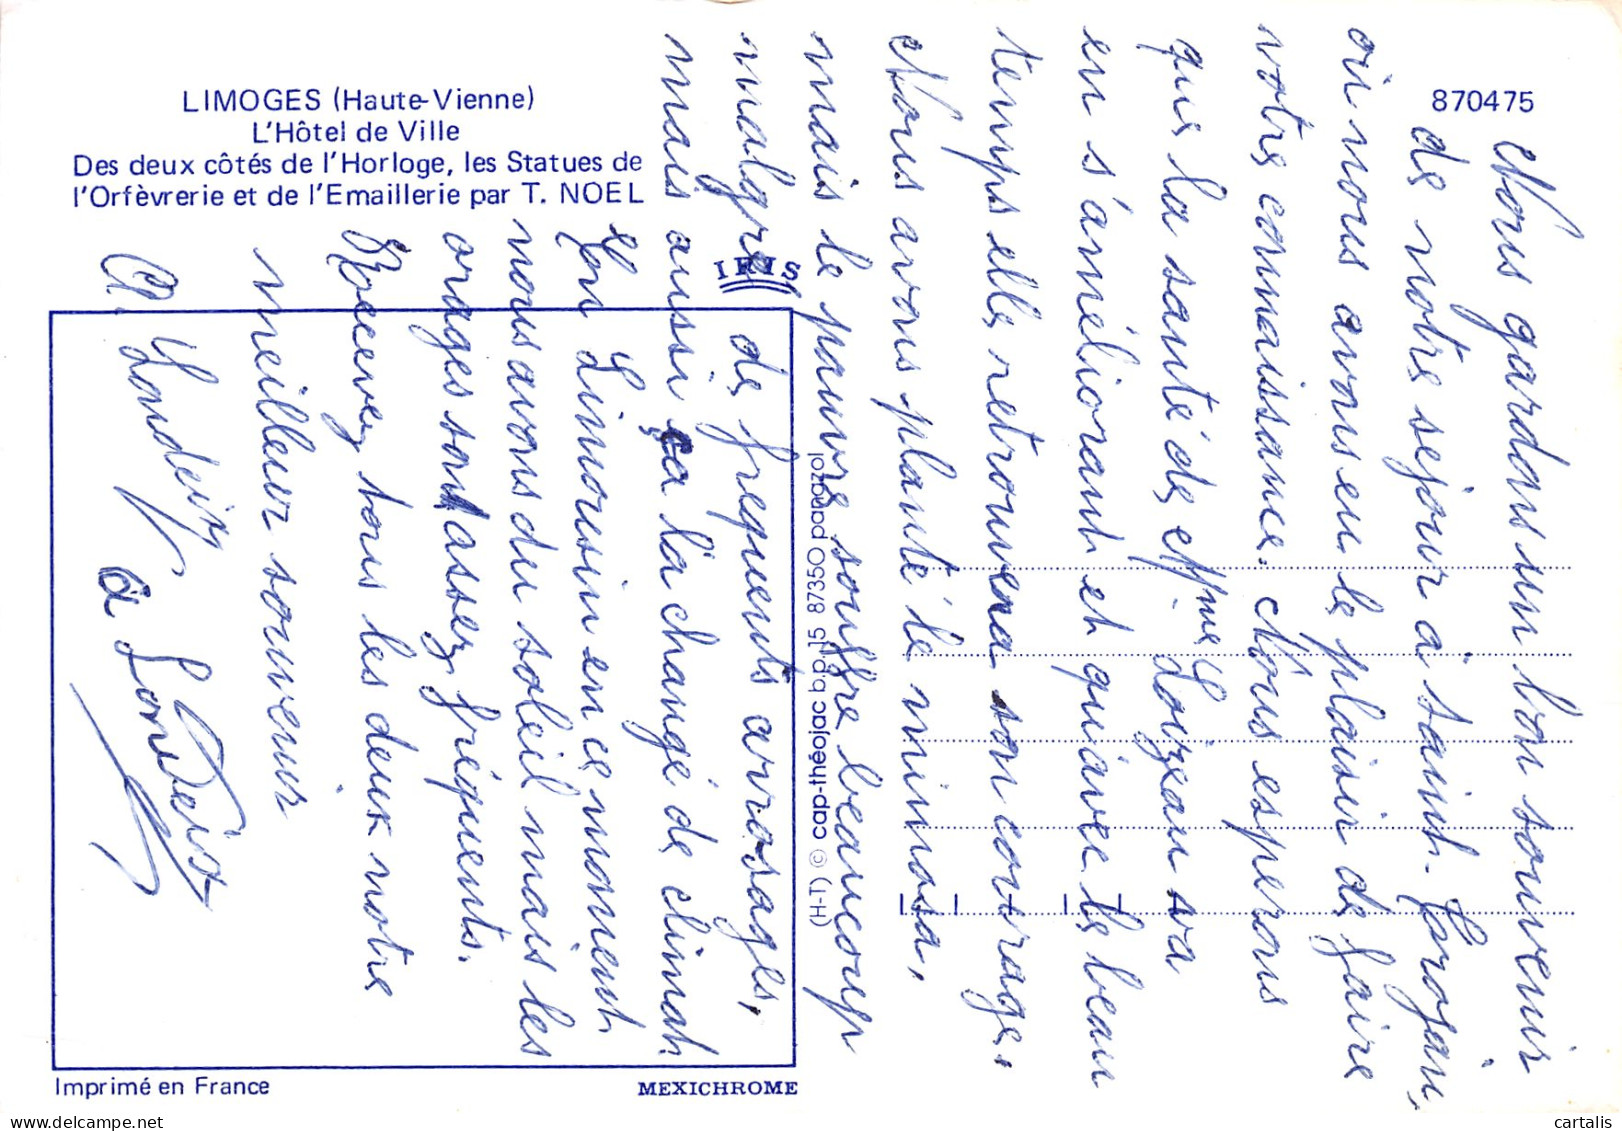 LIMOGES (Haute-Vienne)
L'Hôtel de Ville
Des deux côtés de l'Horloge, les Statues de
l'Orfèvrerie et de l'Emaillerie par T. NOEL
870475
IRIS
(H-T) © cap-théojac b.p.15 87350 panazol
Imprimé en France
MEXICHROME
Nous gardons un bon souvenir
de notre sejour a saint-Projan,
où nous avons eu le plaisir de faire
votre connaissance. Nous esperons
que la santé de Mme Loizeau va
en s'améliorant et qu'avec le beau
temps elle retrouvera son courage.
Nous avons planté le mimosa,
mais le pauvre souffre beaucoup
malgré de frequents arrosages,
mais aussi ça l'a changé de climat
En Limousin en ce moment
nous avons du soleil mais les
orages sont assez fréquents.
Recevez tous les deux notre
meilleur souvenir
cartalis